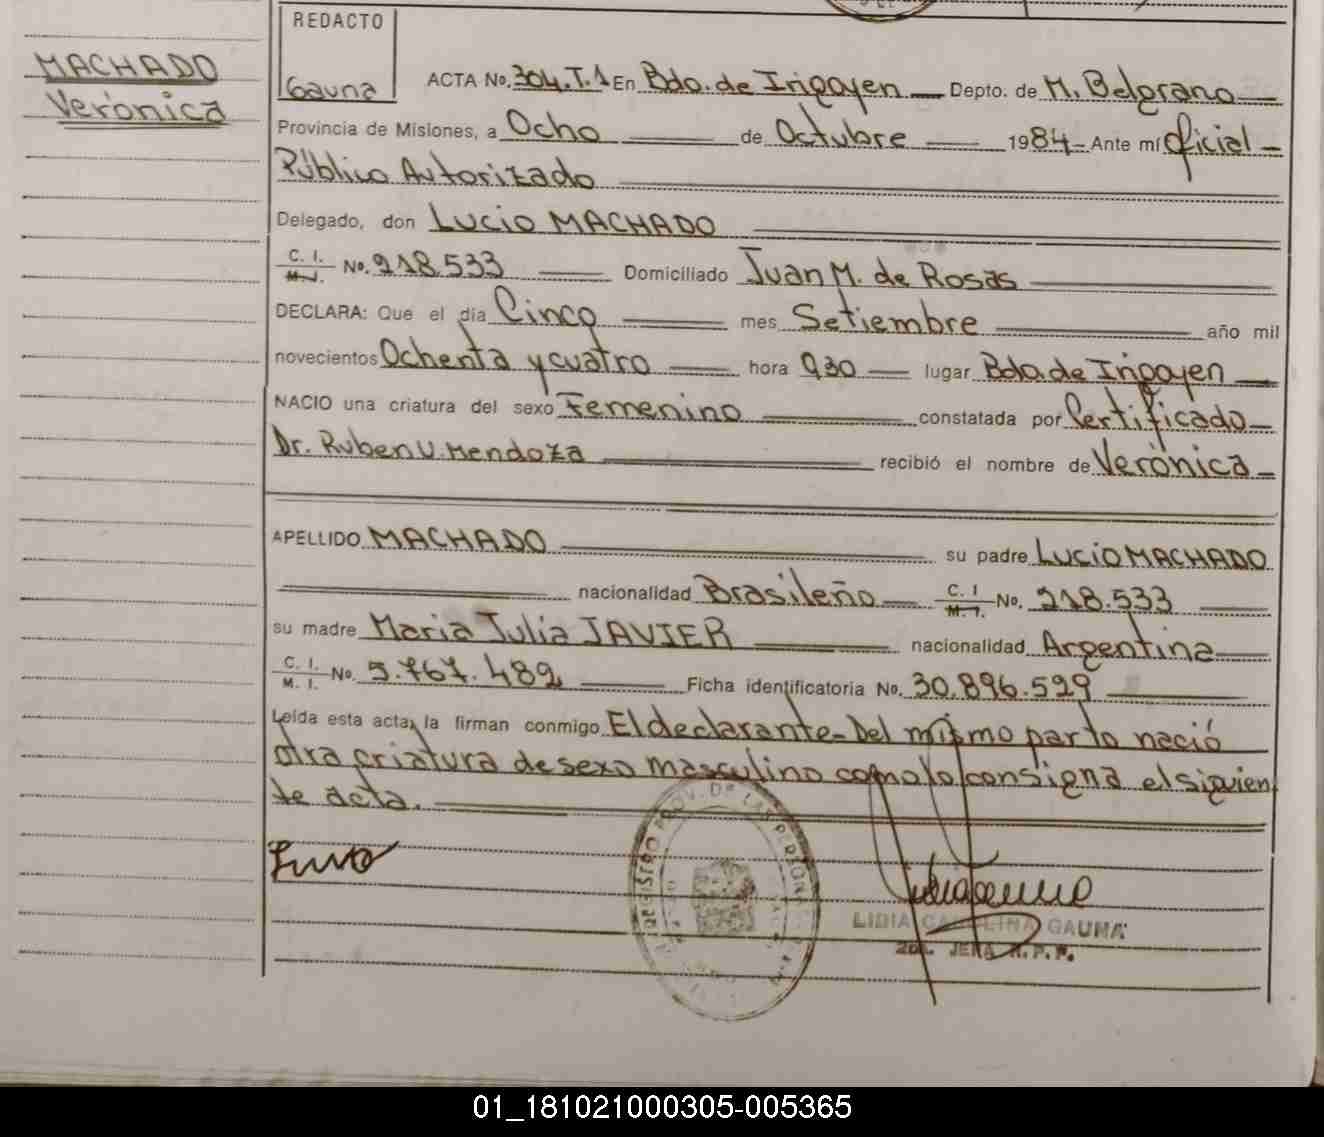 REDACTO
MACHADO
Verónica
Gauna
ACTA No. 304.T.1 En Bdo. de Irigoyen Depto. de M. Belgrano
Provincia de Misiones, a Ocho de Octubre 1984 Ante mí Oficial
Público Autorizado
Delegado, don Lucio MACHADO
C. I. M. I. No. 218.533 Domiciliado Juan M. de Rosas
DECLARA: Que el día Cinco mes Setiembre año mil
novecientos Ochenta y cuatro hora 930 lugar Bdo. de Irigoyen
NACIO una criatura del sexo Femenino constatada por Certificado
Dr. Ruben V. Mendoza recibió el nombre de Verónica
APELLIDO MACHADO su padre LUCIO MACHADO
nacionalidad Brasileño C. I M. I. No. 218.533
su madre Maria Julia JAVIER nacionalidad Argentina
C. I. M. I. No. 5.767.482 Ficha identificatoria No. 30.896.529
Leída esta acta, la firman conmigo El declarante - Del mismo parto nació
otra criatura de sexo masculino como lo consigna el siguien
te acta.
REGISTRO PROV. DE LAS PERSONAS
LIDIA CAROLINA GAUNA
2DA. JEFA R. P. P.
01_181021000305-005365